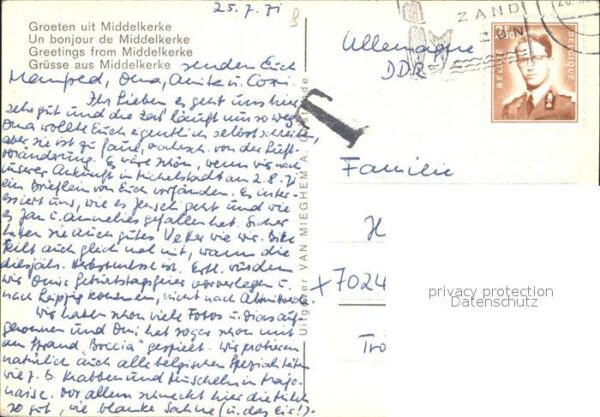 25.7.71
Groeten uit Middelkerke
Un bonjour de Middelkerke
Greetings from Middelkerke
Grüsse aus Middelkerke senden Euch
Manfred, Oma, Anita u. Cosi.
Ihr Lieben es geht uns hier
sehr gut und die Zeit läuft uns so weg.
Oma wollte Euch eigentlich selbst schreiben,
aber sie ist zu faul, von der Luft-
veränderung. Es wäre schön, wenn wir nach
unserer Ankunft in Michelstadt am 2.8.71
ein Brieflein von Euch vorfänden. Es inter-
essiert uns, wie es geht und wie
es Jan u. Annelies gefallen hat. Sicher
haben sie auch gutes Wetter wie wir. Bitte
teilt auch gleich mal mit, wann die
diesjähr. Herbstmesse ist. Evtl. würden
wir Omis Geburtstagsfeier vorverlegen u.
nach Leipzig kommen, nicht nach
Wir haben schon viele Fotos u. Dias auf-
genommen und Omi hat sogar schon mit
am Strand "Boccia" gespielt. Wir probieren
natürlich auch alle belgischen Spezialitäten
wie z.B. Krabben und Muscheln in Majo-
naise. Vor allem schmeckt hier die Milch
so gut, wie blanke Sahne (u. das Eis!).
Uitgever VAN MIEGHEM A.
T
ZAND
ZON
BELGIE
BELGIQUE
Allemagne
DDR
Familie
H
+7024
Tro
privacy protection
Datenschutz